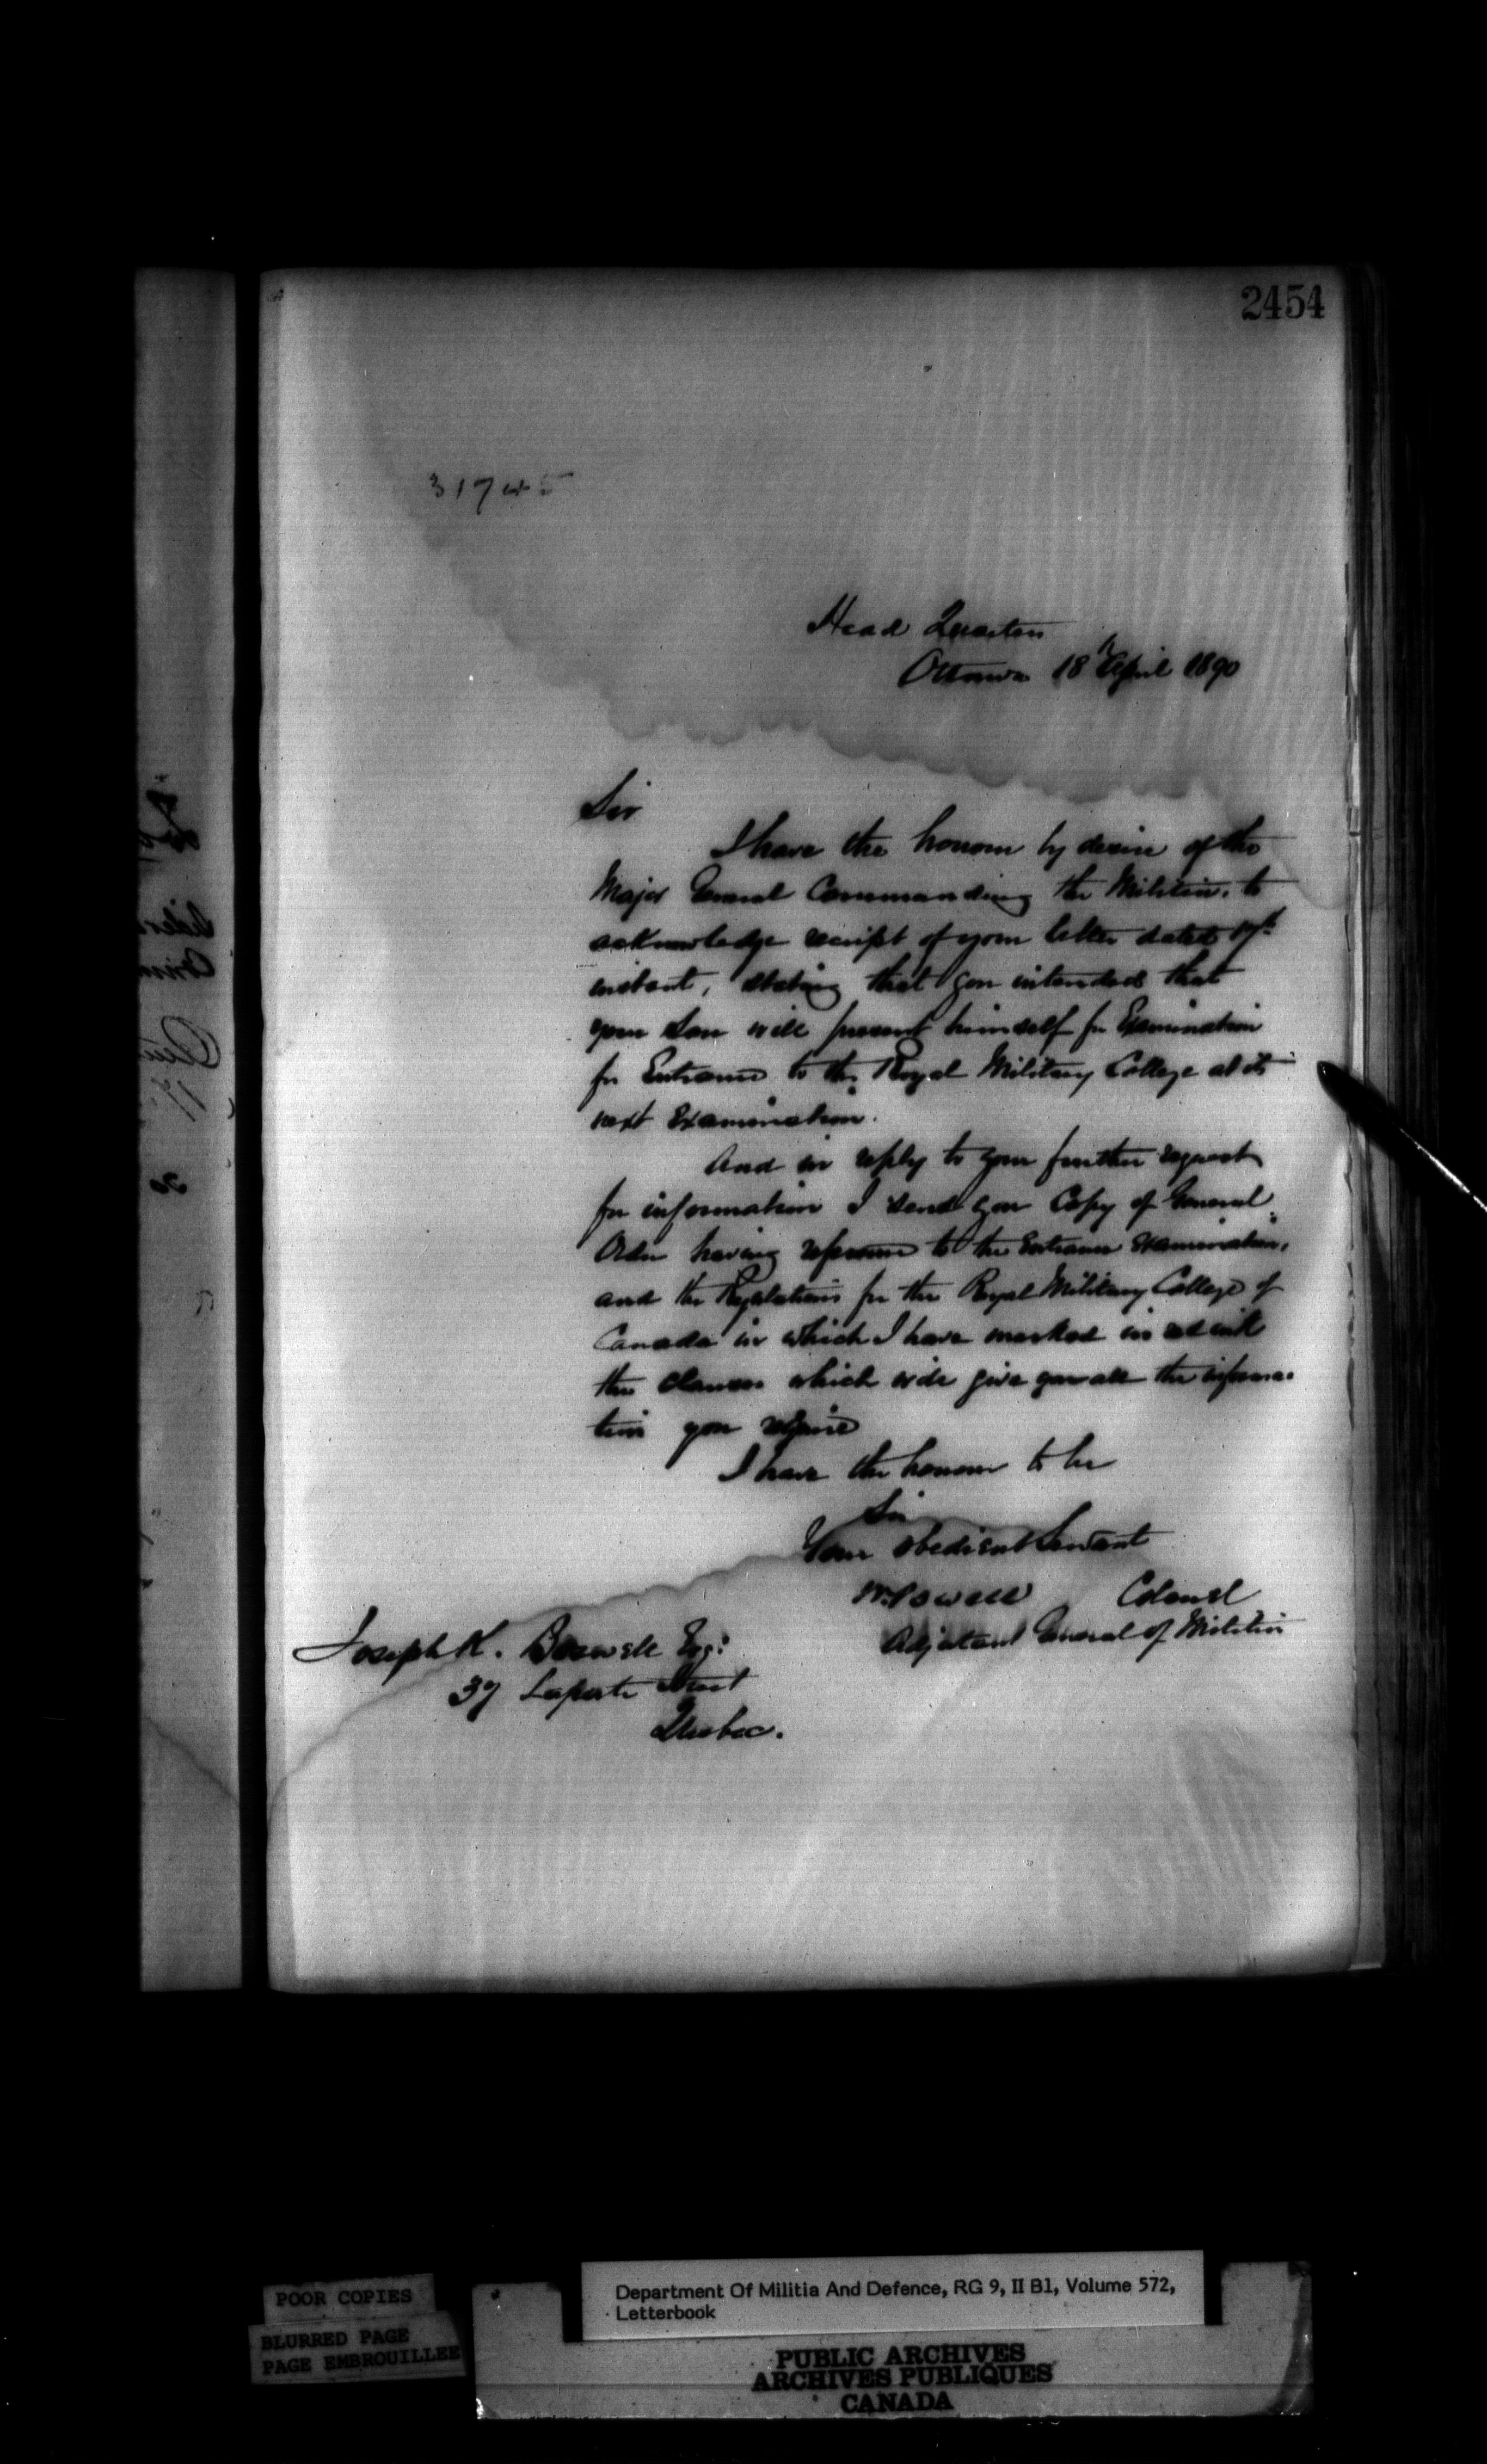 2454
31745
Head Quarters
Ottawa 18th April 1890
Sir
I have the honour by desire of the
Major General Commanding the Militia, to
acknowledge receipt of your letter dated 17th
instant, stating that you intended that
your Son will present himself for Examination
for Entrance to the Royal Military College at its
next Examination.
And in reply to your further request
for information I send you Copy of General
Order having reference to the Entrance Examination,
and the Regulations for the Royal Military College of
Canada in which I have marked in red ink
the clauses which will give you all the informa-
tion you require
I have the honour to be
Sir
Your obedient Servant
W. Powell Colonel
Adjutant General of Militia
Joseph K. Boswell Esq:
37 Laporte Street
Quebec.
POOR COPIES
BLURRED PAGE
PAGE EMBROUILLEE
Department Of Militia And Defence, RG 9, II B1, Volume 572,
Letterbook
PUBLIC ARCHIVES
ARCHIVES PUBLIQUES
CANADA